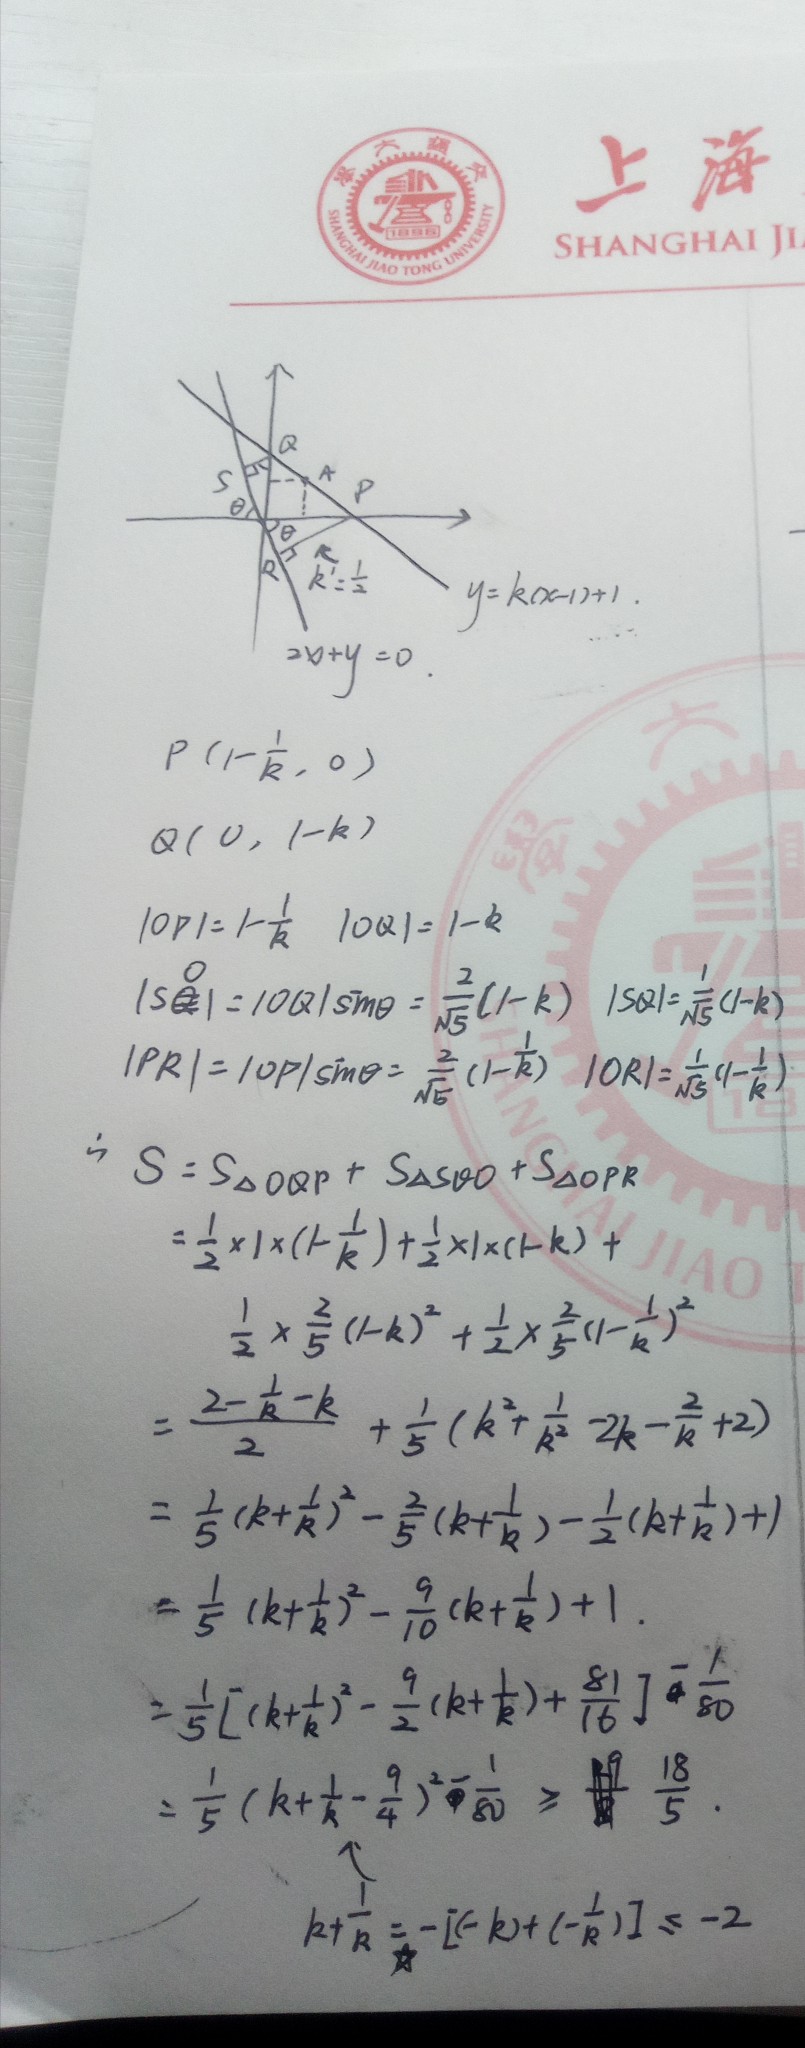 上海
SHANGHAI JIA
SHANGHAI JIAO TONG UNIVERSITY
1896
Q
A
S
P
θ
θ
R
k'=1/2
y=k(x-1)+1.
2x+y=0.
P(1-1/k, 0)
Q(0, 1-k)
|OP|=1-1/k |OQ|=1-k
|SO|=|OQ|sinθ=2/√5(1-k) |SQ|=1/√5(1-k)
|PR|=|OP|sinθ=2/√5(1-1/k) |OR|=1/√5(1-1/k)
∴ S=S△OQP+S△SQO+S△OPR
=1/2×1×(1-1/k)+1/2×1×(1-k)+
1/2×2/5(1-k)²+1/2×2/5(1-1/k)²
=(2-1/k-k)/2+1/5(k²+1/k²-2k-2/k+2)
=1/5(k+1/k)²-2/5(k+1/k)-1/2(k+1/k)+1
=1/5(k+1/k)²-9/10(k+1/k)+1.
=1/5[(k+1/k)²-9/2(k+1/k)+81/16]-1/80
=1/5(k+1/k-9/4)²-1/80≥18/5.
k+1/k=-[(-k)+(-1/k)]≤-2